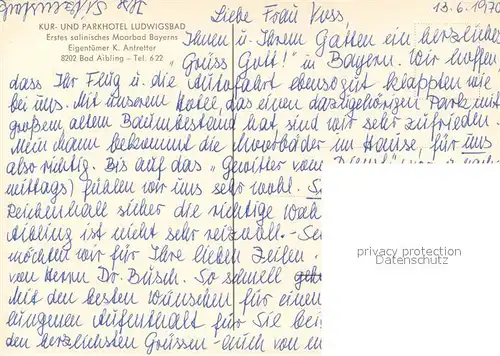 13.6.1970
Liebe Frau Kuss,
KUR- UND PARKHOTEL LUDWIGSBAD
Erstes salinisches Moorbad Bayerns
Eigentümer K. Antretter
8202 Bad Aibling – Tel. 622
Ihnen u. Ihrem Gatten ein herzliches
„Grüss Gott!" in Bayern. Wir hoffen,
dass Ihr Flug u. die Autofahrt ebensogut klappten wie
bei uns. Mit unserem Hotel, das einen dazugehörigen Park mit
großem altem Baumbestand hat, sind wir sehr zufrieden.
Mein Mann bekommt die Moorbäder im Hause, für uns
also richtig. Bis auf das „Gewitter vom
mittags) fühlen wir uns sehr wohl.
Reichenhall sicher die richtige
Aibling ist nicht sehr reizvoll.
möchten wir für Ihre lieben Zeilen
von Herrn Dr. Busch. So schnell
Mit den besten Wünschen für einen
Aufenthalt für Sie
den herzlichsten Grüssen – auch von
privacy protection
AnsichtskartenVersand